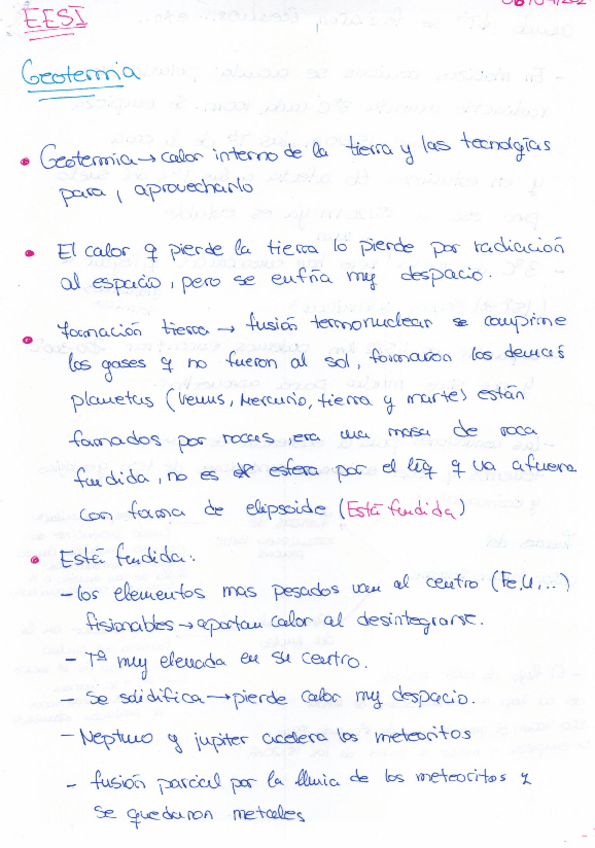 EESI
Geotermia
• Geotermia → calor interno de la tierra y las tecnolgías
para, aprovecharlo
• El calor q pierde la tierra lo pierde por radiación
al espacio, pero se enfría muy despacio.
• Formación tierra → fusión termonuclear se comprime
los gases y no fueron al sol, formaron los demás
planetas (Venus, Mercurio, tierra y marte) están
formados por rocas, era una masa de roca
fundida, no es esfera por el líq q va afuera
con forma de elipsoide (Está fundida)
• Está fundida:
- los elementos mas pesados van al centro (Fe, U, ...)
fisionables → aportan calor al desintegrarse.
- Tª muy elevada en su centro.
- Se solidifica → pierde calor muy despacio.
- Neptuno y jupiter acelera los meteoritos
- fusión parcial por la lluvia de los meteoritos y
se quedaron metales